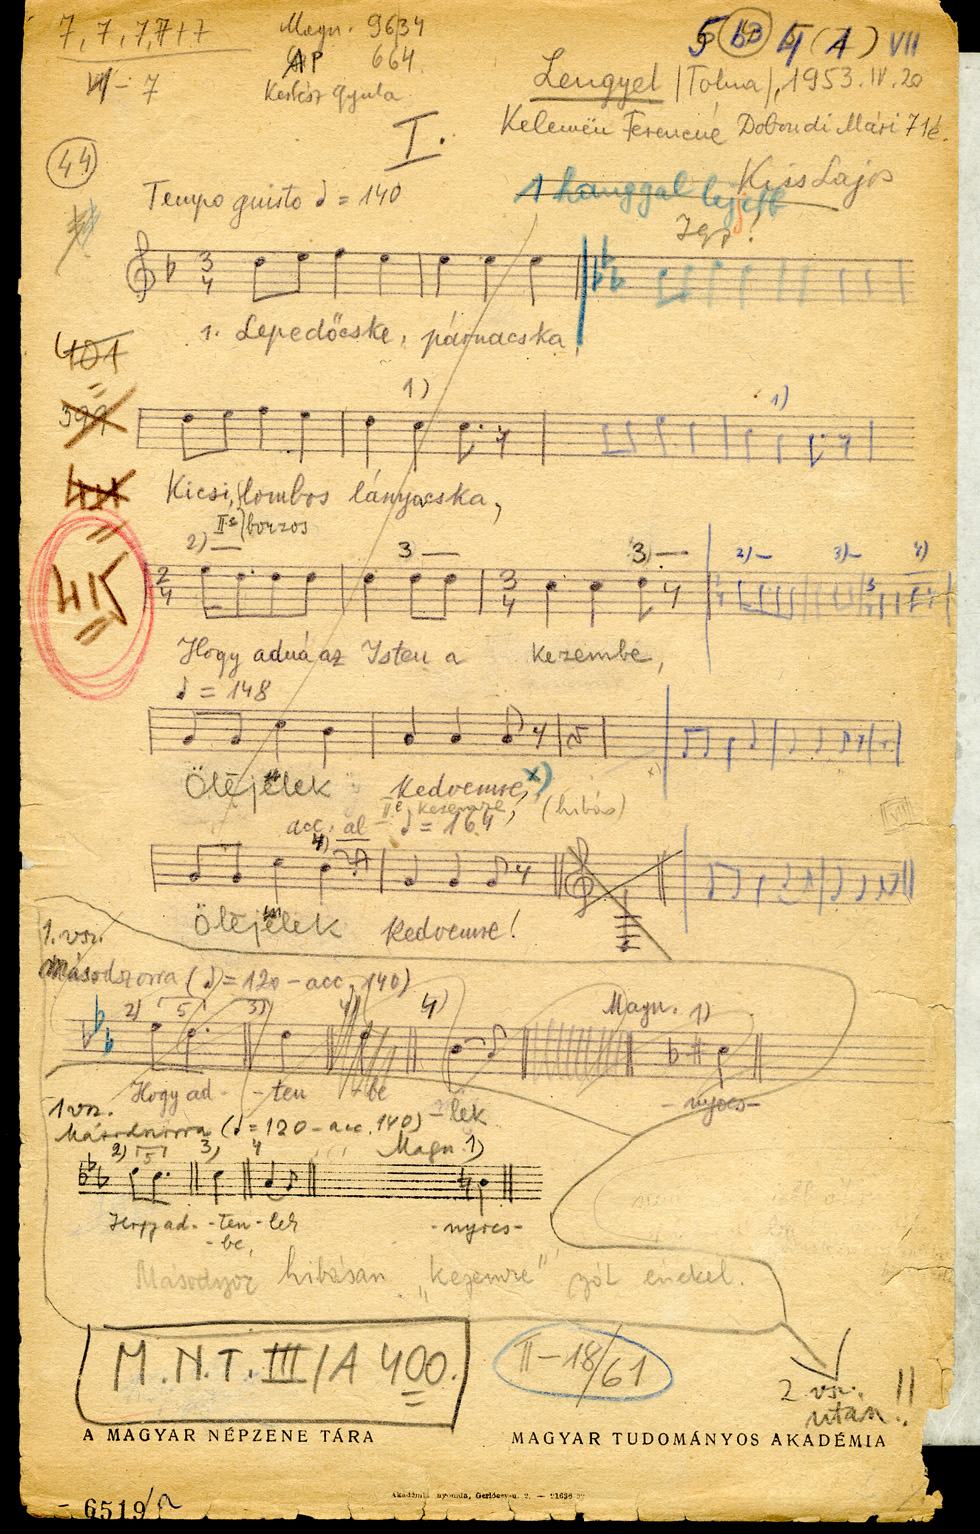 7, 7, 7, 7+7
VII - 7
Magn. 9634
AP 664.
Kertész Gyula
5 b3 4 (A) VII
Lengyel (Tolna), 1953. IV. 20
Kelemen Ferencné Dobondi Mári 71 é.
Kiss Lajos
I.
44
Tempo giusto ♩ = 140
1 hanggal lejjebb
Igy!
3/4
1. Lepedőcske, párnacska,
401
399
1)
1)
Kicsi, lombos lánycska,
IIre borzos
415
2)
3
3)
2)
3)
4)
2/4
3/4
Hogy adná az Isten a kezembe,
♩ = 148
Ölejelek kedvemre, x)
IIe, kezemre, (hibás)
acc. al ♩ = 164
4)
VII
Ölejelek kedvemre!
1. vsz.
Másodszorra (♩ = 120 - acc. 140)
2) 5 3) 4) 4) Magn. 1)
Hogy ad- -ten be -lek -nyocs-
1 vsz.
Másodszorra (♩ = 120 - acc. 140)
2) 5 3) 4 Magn. 1)
Hogy ad- -ten- -lek -nyocs-
-be,
Másodszor hibásan "kezemre"-ről énekel.
M.N.T. III/A 400.
II-18/61
2 vsz. után!!
A MAGYAR NÉPZENE TÁRA
MAGYAR TUDOMÁNYOS AKADÉMIA
Akadémiai nyomda, Gerlóczy-u. 2. — 21636
- 6519/a